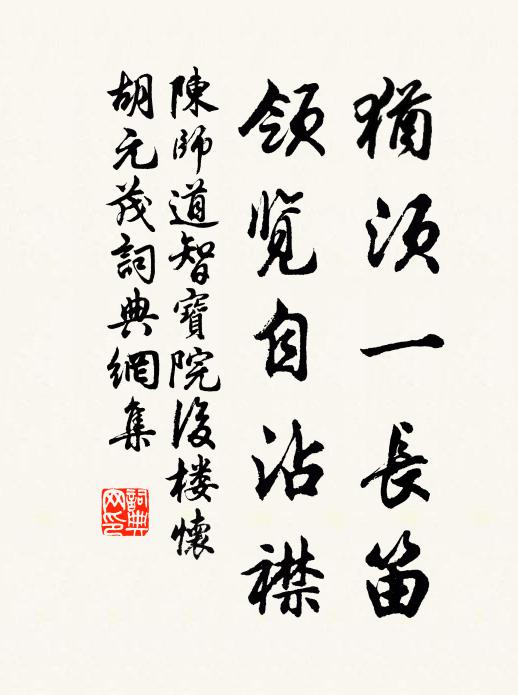 猶須一長笛
領覽自沾襟
陳師道智寶院後樓懷
胡元茂詞典網集
詞典網印